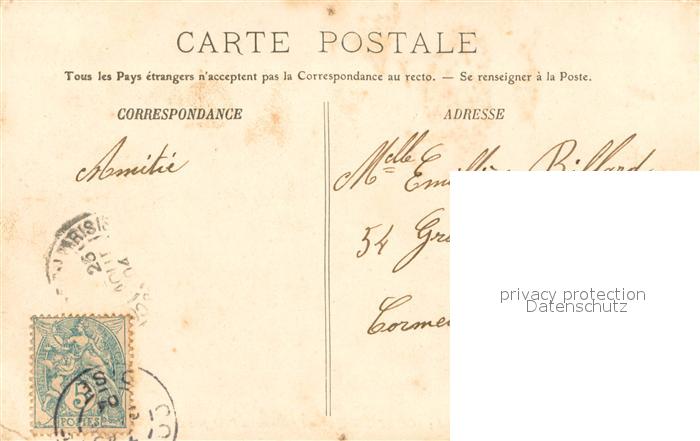 CARTE POSTALE
Tous les Pays étrangers n'acceptent pas la Correspondance au recto. — Se renseigner à la Poste.
CORRESPONDANCE
ADRESSE
Amitié
Melle Emilie Billard
54 Gr
Corme
privacy protection
Datenschutz
PARIS
25
5
POSTES